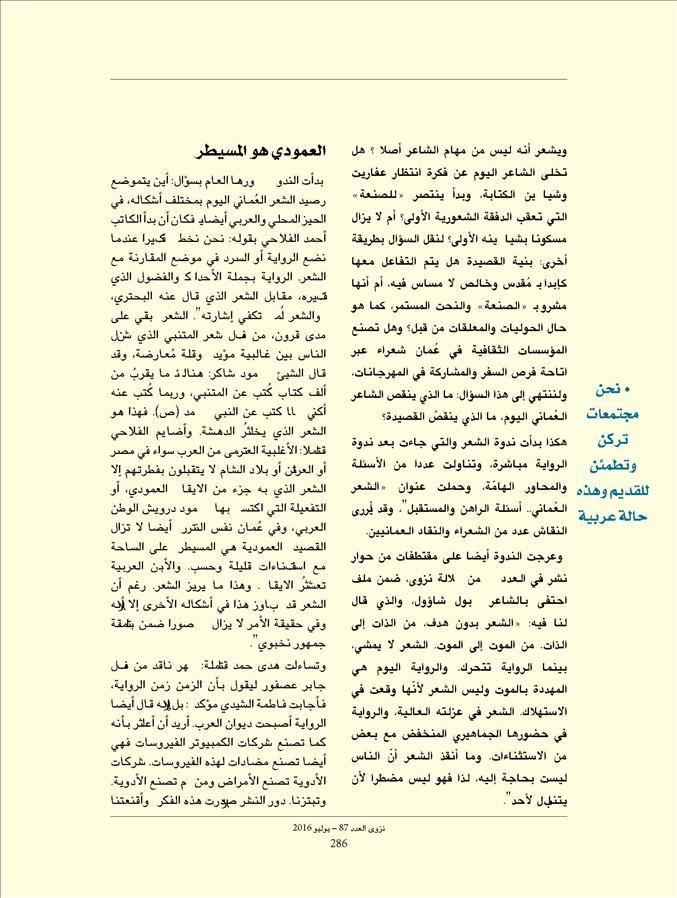 ويشعر أنه ليس من مهام الشاعر أصلا ؟ هل
تخلى الشاعر اليوم عن فكرة انتظار عفاريت
وشيا ين الكتابة، وبدأ ينتصر «للصنعة»
التي تعقب الدفقة الشعورية الأولى؟ أم لا يزال
مسكونا بشيا ينه الأولى؟ لنقل السؤال بطريقة
أخرى: بنية القصيدة هل يتم التفاعل معها
مُقدس وخالص لا مساس فيه، أم أنها
«الصنعة» والنحت المستمر، كما هو
حال الحوليات والمعلقات من قبل؟ وهل تصنع
المؤسسات الثقافية في عُمان شعراء عبر
اتاحة فرص السفر والمشاركة في المهرجانات،
ولننتهي إلى هذا السؤال: ما الذي ينقص الشاعر
العُماني اليوم، ما الذي ينقصُ القصيدة؟
هكذا بدأت ندوة الشعر والتي جاءت بعد ندوة
الرواية مباشرة، وتناولت عددا من الأسئلة
والمحاور الهامّة، وحملت عنوان «الشعر
العُماني.. أسئلة الراهن والمستقبل"، وقد
النقاش عدد من الشعراء والنقاد العمانيين.
وعرجت الندوة أيضا على مقتطفات من حوار
نشر في العدد من لالة نزوى، ضمن ملف
احتفى بالشاعر بول شاؤول، والذي قال
لنا فيه: «الشعر بدون هدف، من الذات إلى
الذات. من الموت إلى الموت. الشعر لا يمشي،
بينما الرواية تتحرك. والرواية اليوم هي
المهددة بالموت وليس الشعر لأنّها وقعت في
الاستهلاك. الشعر في عزلته العالية، والرواية
في حضورها الجماهيري المنخفض مع بعض
من الاستثناءات. وما أنقذ الشعر أنّ الناس
ليست بحاجة إليه، لذا فهو ليس مضطرا لأن
لأحد".
العمودي هو المسيطر
بدأت الندو ورها العام بسؤال: أين يتموضع
رصيد الشعر العُماني اليوم بمختلف أشكاله، في
الحيز المحلي والعربي فكان أن بدأ الكاتب
أحمد الفلاحي بقوله: نحن نخط عندما
نضع الرواية أو السرد في موضع المقارنة مع
الشعر. الرواية بجملة والفضول الذي
مقابل الشعر الذي قال عنه البحتري،
والشعر تكفي إشارته". الشعر بقي على
مدى قرون، من شعر المتنبي الذي
الناس بين غالبية مؤيد وقلة مُعارضة، وقد
قال الشي مود شاكر: ما يقربُ من
ألف كتاب كُتب عن المتنبي، وربما كُتب عنه
كتب عن النبي مد (ص). فهذا هو
الشعر الذي الدهشة. الفلاحي
الأغلبية من العرب سواء في مصر
أو أو بلاد الشام لا يتقبلون بفطرتهم إلا
الشعر الذي به جزء من الايقا العمودي، أو
التفعيلة التي بها مود درويش الوطن
العربي، وفي عُمان نفس أيضا لا تزال
القصيد العمودية هي المسيطر على الساحة
مع قليلة وحسب. والأذن العربية
الايقا . وهذا ما يريز الشعر. رغم أن
الشعر قد هذا في أشكاله الأخرى إلا
وفي حقيقة الأمر لا يزال صورا ضمن
جمهور نخبوي".
وتساءلت هدى حمد هر ناقد من
جابر عصفور ليقول بأن الزمن زمن الرواية،
فأجابت فاطمة الشيدي مؤكد : بل قال أيضا
الرواية أصبحت ديوان العرب. أريد أن بأنه
كما تصنع شركات الكمبيوتر الفيروسات فهي
أيضا تصنع مضادات لهذه الفيروسات. شركات
الأدوية تصنع الأمراض ومن م تصنع الأدوية.
وتبتزنا. دور النشر هذه الفكر وأقنعتنا
• نحن
مجتمعات
تركن
وتطمئن
للقديم وهذه
حالة عربية
نزوى العدد 87 – يوليو 2016
286